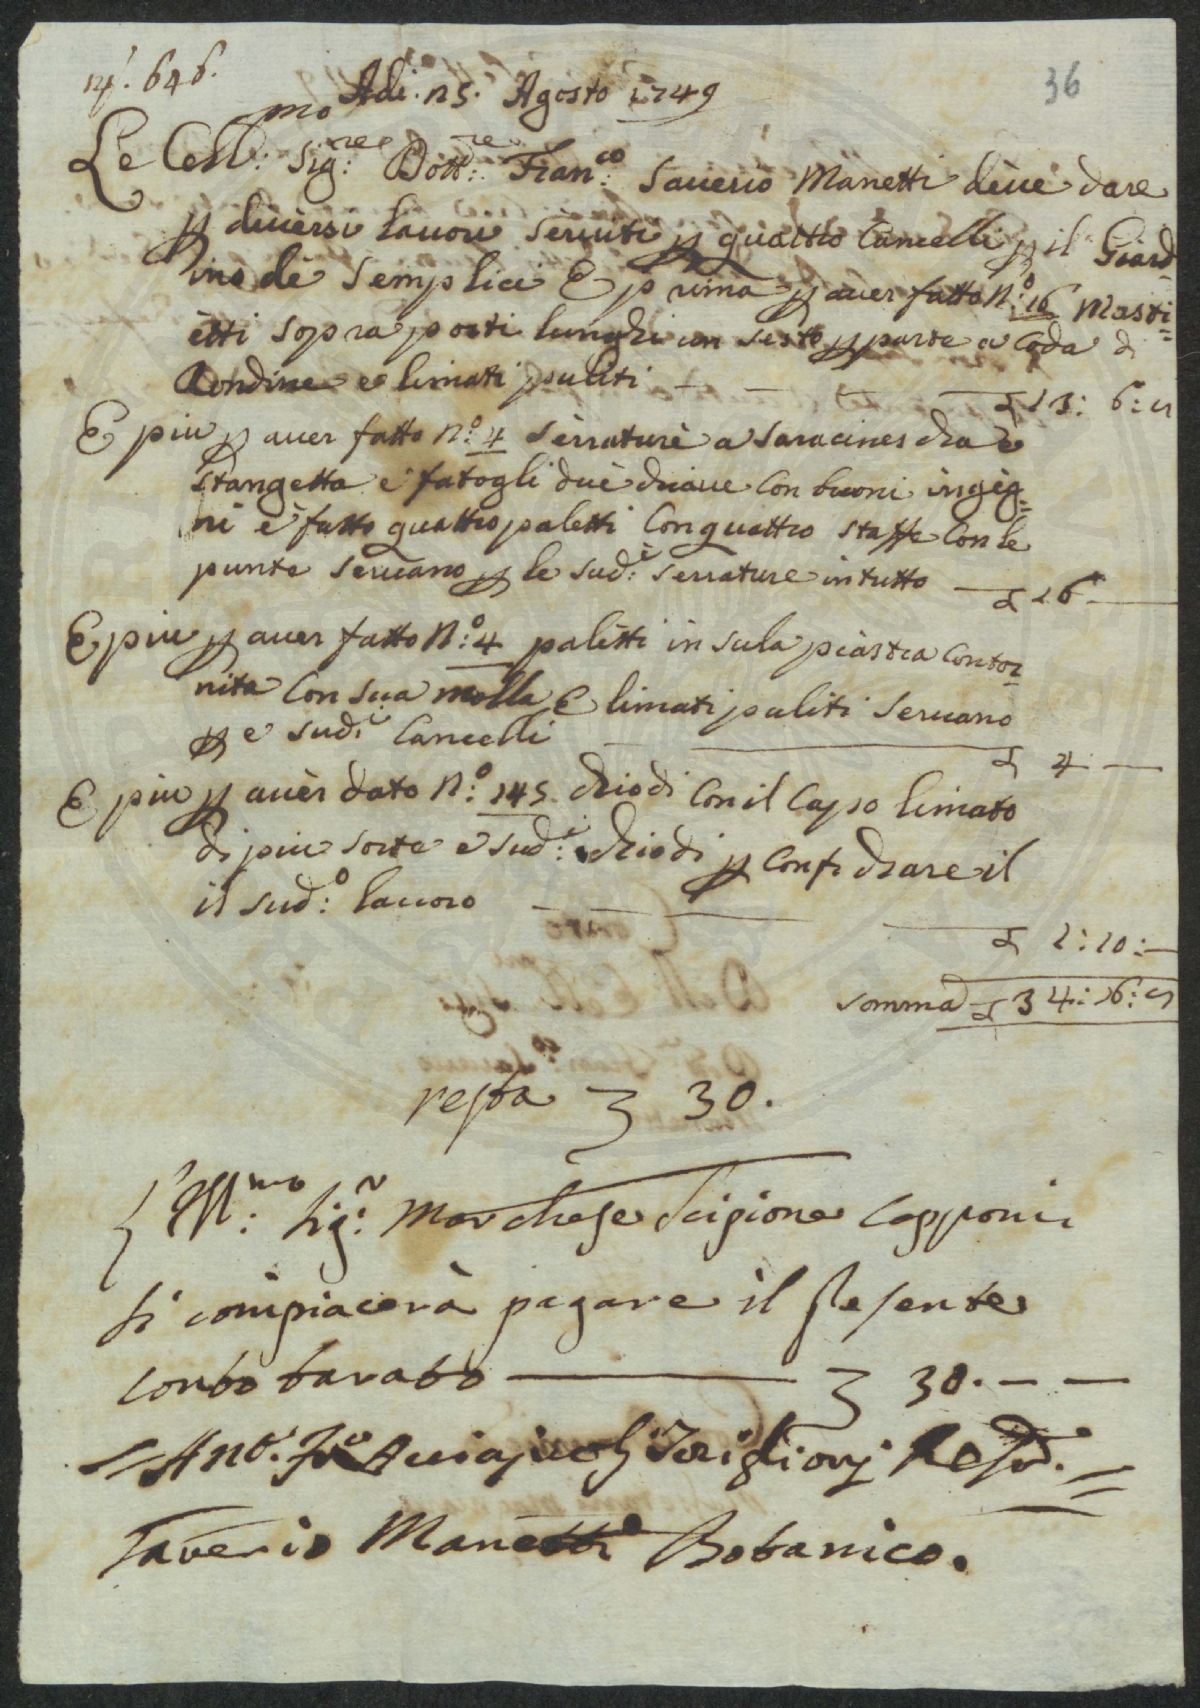 nº. 646.
36
Adi. 25. Agosto 1749
L'e Cell:mo Sig:re Dott:re Fran:co Saverio Manetti deve dare
p diversi lavori serviti p quattro Cancelli p il Giard
ino de Semplici E prima p aver fatto N:o 16 Masti=
etti sopra posti lunghi con sesto p parte a Coda di
Rondine e limati puliti — — — £ 13: 6: 8
E piu p aver fatto N:o 4 serrature a saracinescha e
stangetta e fatogli due chiave Con buoni ingeg=
ni e fatto quattro paletti Con quattro staffe Con le
punte servano p le sud:e serrature in tutto — £ 16 —
E piu p aver fatto N:o 4 paletti in sula piastra Contor=
nita Con sua molla E limati puliti servano
p e sud:i Cancelli — £ 4 —
E piu p aver dato N:o 145 chiodi Con il Capo limato
di piu sorte e sud:i chiodi p Conficchare il
il sud:o lavoro —
— £ 1: 10: —
somma £ 34: 16: 8
resta ʒ 30.
L'Ill:mo Sig:r Marchese Scipione Capponi
si compiacerà pagare il presente
conto tarato — ʒ 30. — —
Saverio Manetti Botanico.